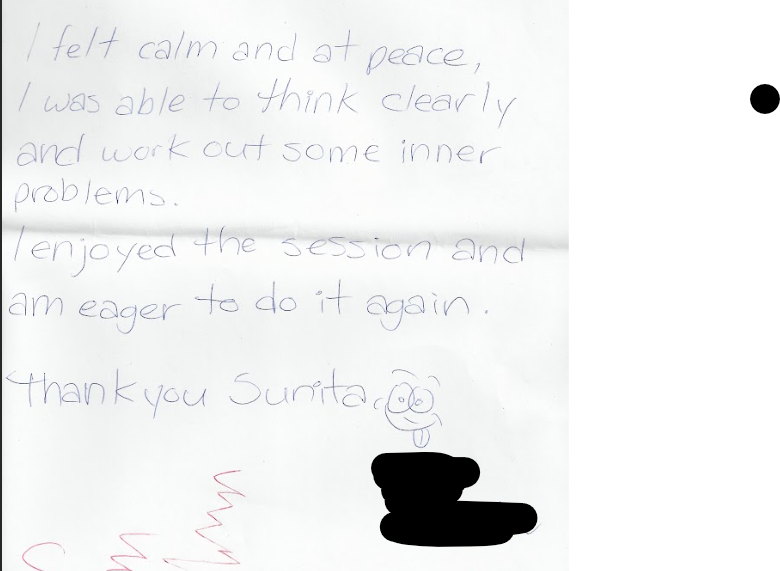 I felt calm and at peace,
I was able to think clearly
and work out some inner
problems.
I enjoyed the session and
am eager to do it again.
Thank you Sunita